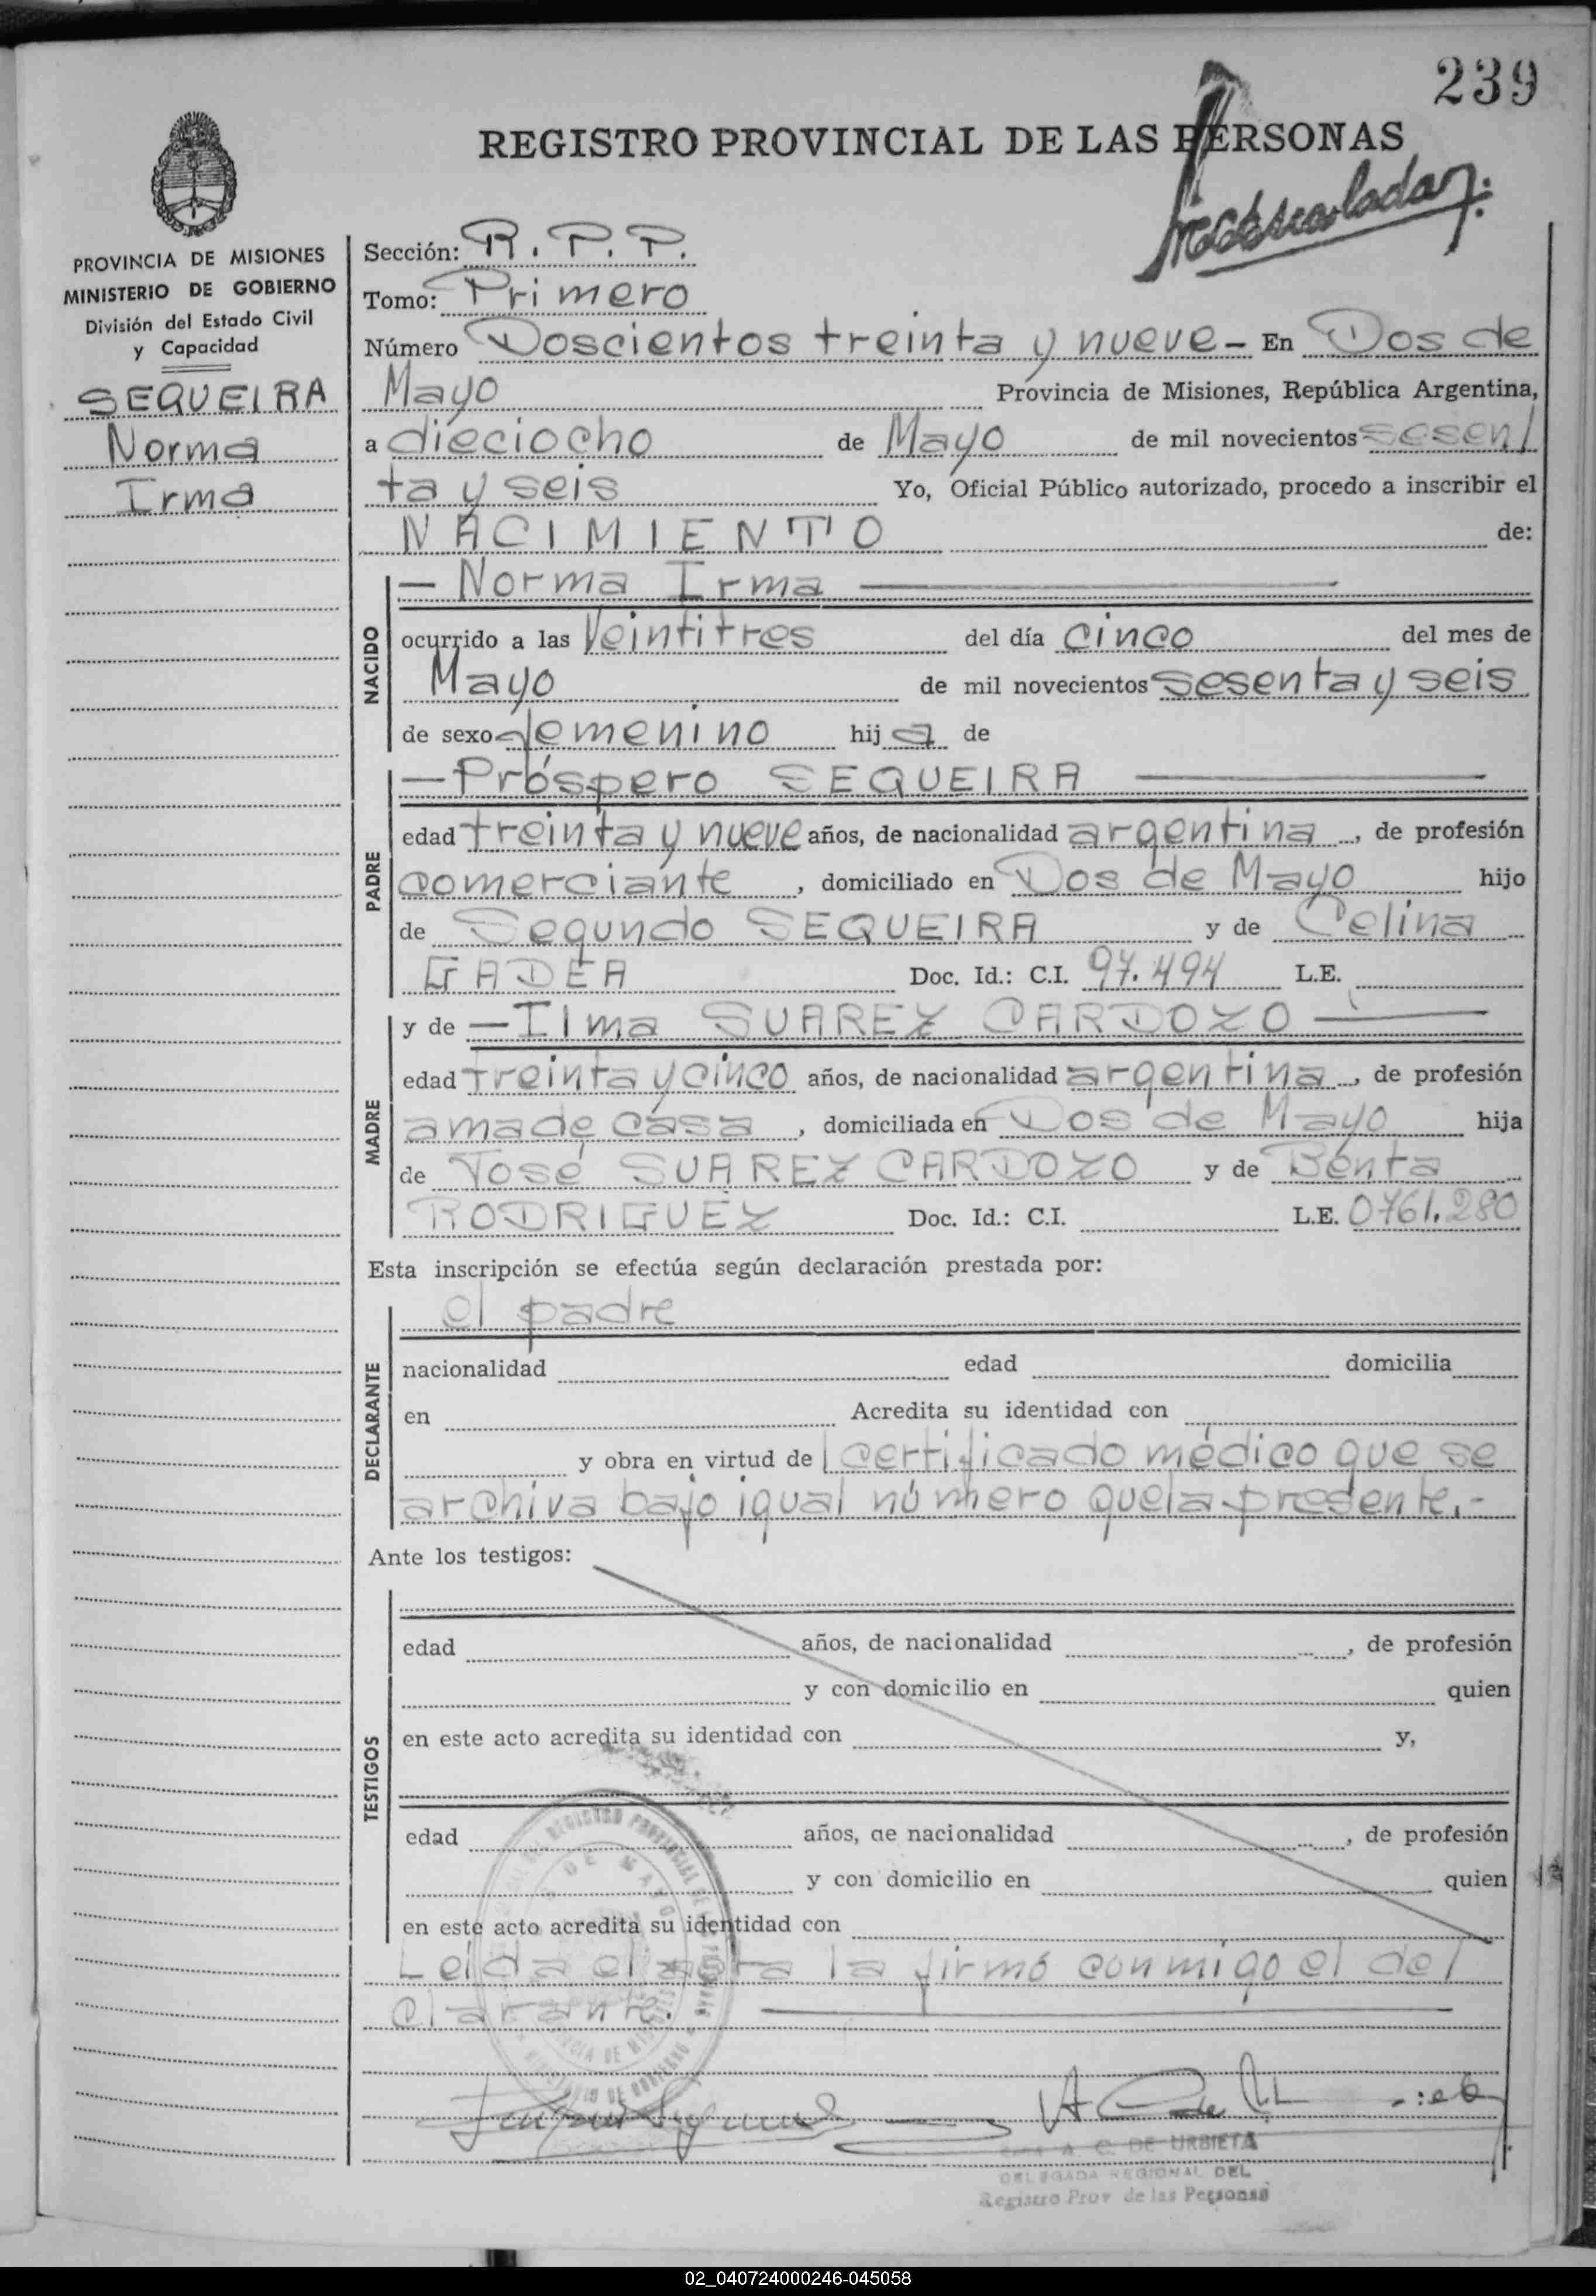 239
REGISTRO PROVINCIAL DE LAS PERSONAS
PROVINCIA DE MISIONES
MINISTERIO DE GOBIERNO
División del Estado Civil
y Capacidad
SEQUEIRA
Norma
Irma
Sección: R. P. P.
Tomo: Primero
Número Doscientos treinta y nueve - En Dos de
Mayo Provincia de Misiones, República Argentina,
a dieciocho de Mayo de mil novecientos sesen/
ta y seis Yo, Oficial Público autorizado, procedo a inscribir el
NACIMIENTO de:
NACIDO
— Norma Irma —
ocurrido a las Veintitres del día cinco del mes de
Mayo de mil novecientos sesenta y seis
de sexo femenino hij a de
PADRE
— Próspero SEQUEIRA —
edad treinta y nueve años, de nacionalidad argentina, de profesión
comerciante, domiciliado en Dos de Mayo hijo
de Segundo SEQUEIRA y de Celina
GADEA Doc. Id.: C.I. 97.494 L.E.
MADRE
y de — Ilma SUAREZ CARDOZO —
edad treinta y cinco años, de nacionalidad argentina, de profesión
ama de casa, domiciliada en Dos de Mayo hija
de José SUAREZ CARDOZO y de Benta
RODRIGUEZ Doc. Id.: C.I. L.E. 0761.280
Esta inscripción se efectúa según declaración prestada por:
DECLARANTE
el padre
nacionalidad edad domicilia
en Acredita su identidad con
y obra en virtud de certificado médico que se
archiva bajo igual número que la presente.-
Ante los testigos:
TESTIGOS
edad años, de nacionalidad , de profesión
y con domicilio en quien
en este acto acredita su identidad con y,
edad años, de nacionalidad , de profesión
y con domicilio en quien
en este acto acredita su identidad con
Leída el acta la firmó conmigo el de/
clarante. —
A. C. DE URBIETA
DELEGADA REGIONAL DEL
Registro Prov de las Personas
02_040724000246-045058